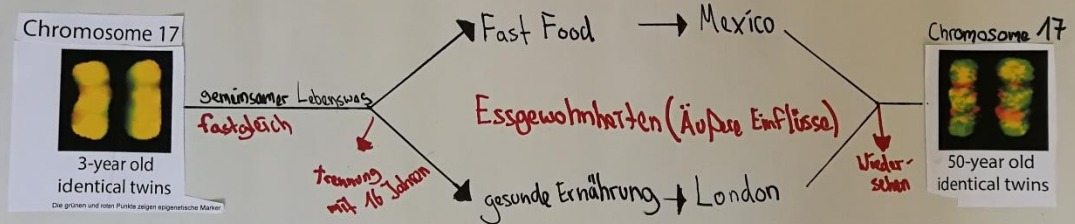 Chromosome 17
3-year old
identical twins
Die grünen und roten Punkte zeigen epigenetische Marker
gemeinsamer Lebensweg
fastgleich
trennung
mit 16 Jahren
Fast Food → Mexico
Essgewohnheiten (Äußere Einflüsse)
gesunde Ernährung → London
Wieder-
sehen
Chromosome 17
50-year old
identical twins